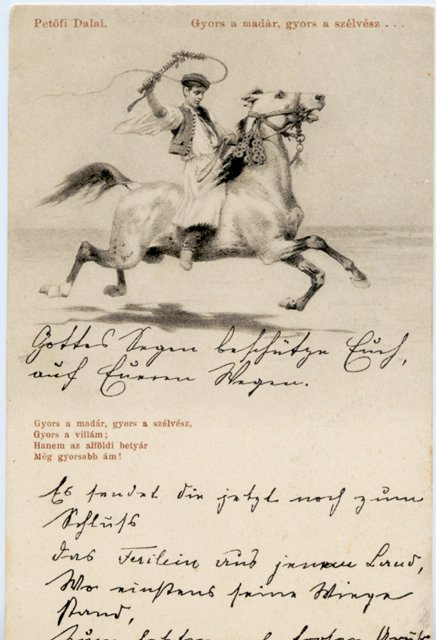 Petőfi Dalai.
Gyors a madár, gyors a szélvész . . .
Gottes Segen beschütze Euch,
auf Eueren Wegen.
Gyors a madár, gyors a szélvész,
Gyors a villám;
Hanem az alföldi betyár
Még gyorsabb ám!
Es sendet die jetzt noch zum
Schluß
das aus jenem Land,
Wo einstens seine Wiege
stand,